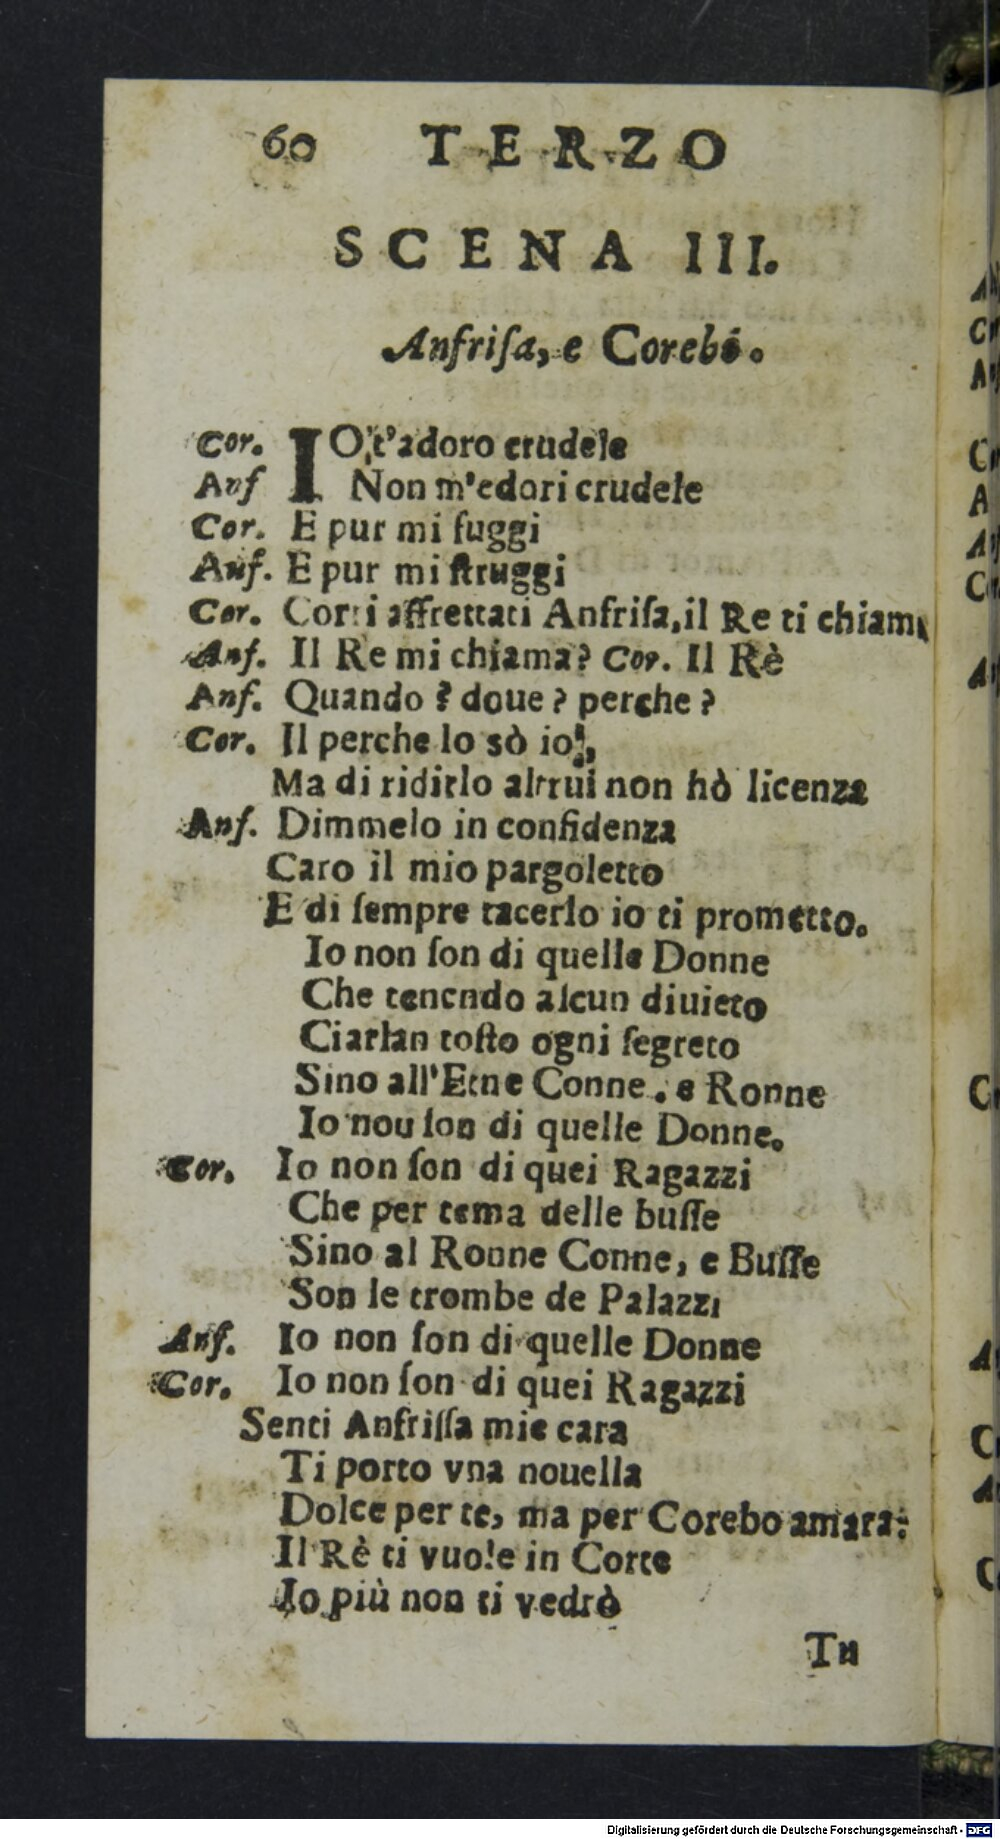 60 TERZO
SCENA III.
Anfriſa, e Corebo.
Cor. IO t'adoro crudele
Anf Non m'edori crudele
Cor. E pur mi fuggi
Anf. E pur mi ſtruggi
Cor. Corri affrettati Anfriſa, il Re ti chiama
Anf. Il Re mi chiama? Cor. Il Rè
Anf. Quando? doue? perche?
Cor. Il perche lo sò io,
Ma di ridirlo altrui non hò licenza
Anf. Dimmelo in confidenza
Caro il mio pargoletto
E di ſempre tacerlo io ti prometto.
Io non ſon di quelle Donne
Che tenendo alcun diuieto
Ciarlan toſto ogni ſegreto
Sino all'Etne Conne. e Ronne
Io nou ſon di quelle Donne.
Cor. Io non ſon di quei Ragazzi
Che per tema delle buſſe
Sino al Ronne Conne, e Buſſe
Son le trombe de Palazzi
Anf. Io non ſon di quelle Donne
Cor. Io non ſon di quei Ragazzi
Senti Anfriſſa mie cara
Ti porto vna nouella
Dolce per te, ma per Corebo amara:
Il Rè ti vuole in Corte
Io più non ti vedrò
Tu
Digitalisierung gefördert durch die Deutsche Forschungsgemeinschaft - DFG